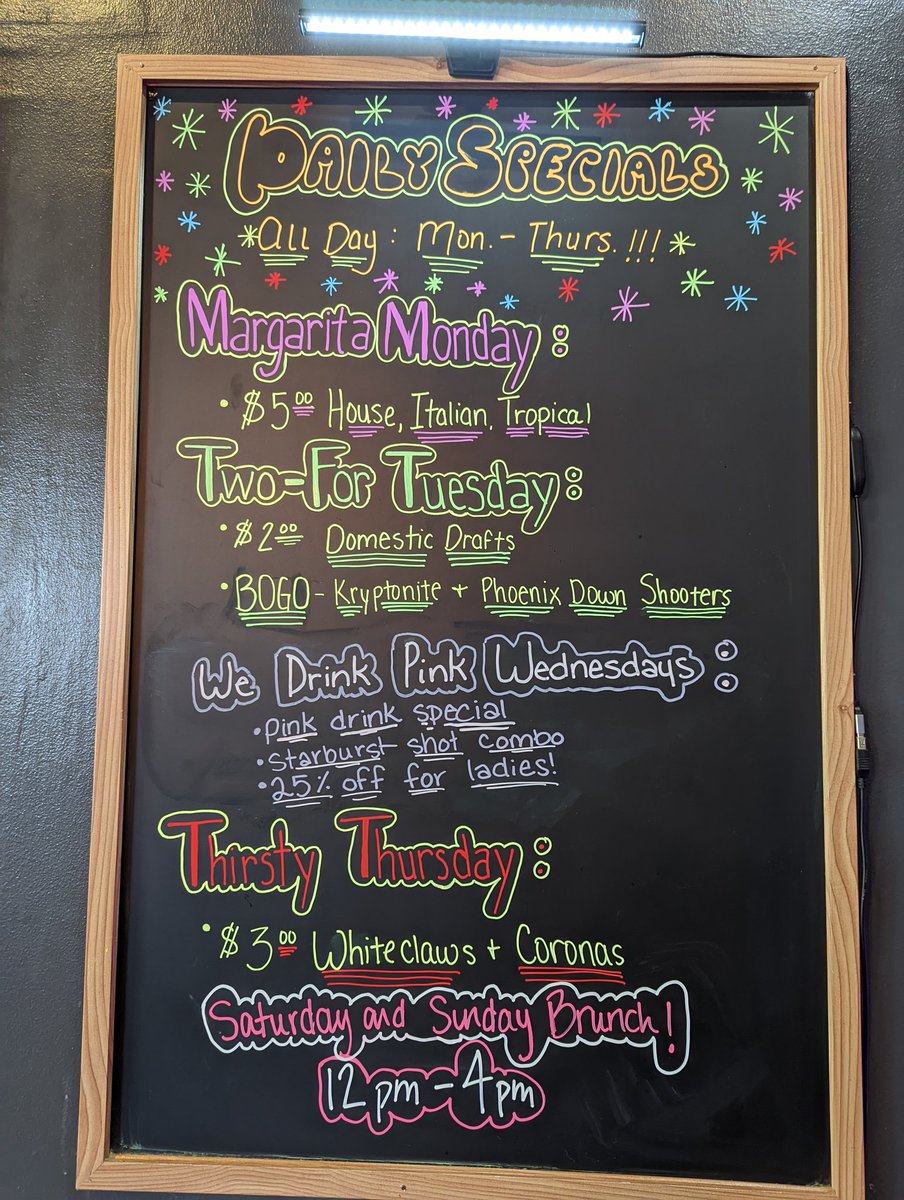 Daily Specials
All Day: Mon. - Thurs. !!!
Margarita Monday:
• $5.00 House, Italian, Tropical
Two-For Tuesday:
• $2.00 Domestic Drafts
• BOGO - Kryptonite + Phoenix Down Shooters
We Drink Pink Wednesdays:
• pink drink special
• starburst shot combo
• 25% off for ladies!
Thirsty Thursday:
• $3.00 Whiteclaws + Coronas
Saturday and Sunday Brunch!
12pm - 4pm